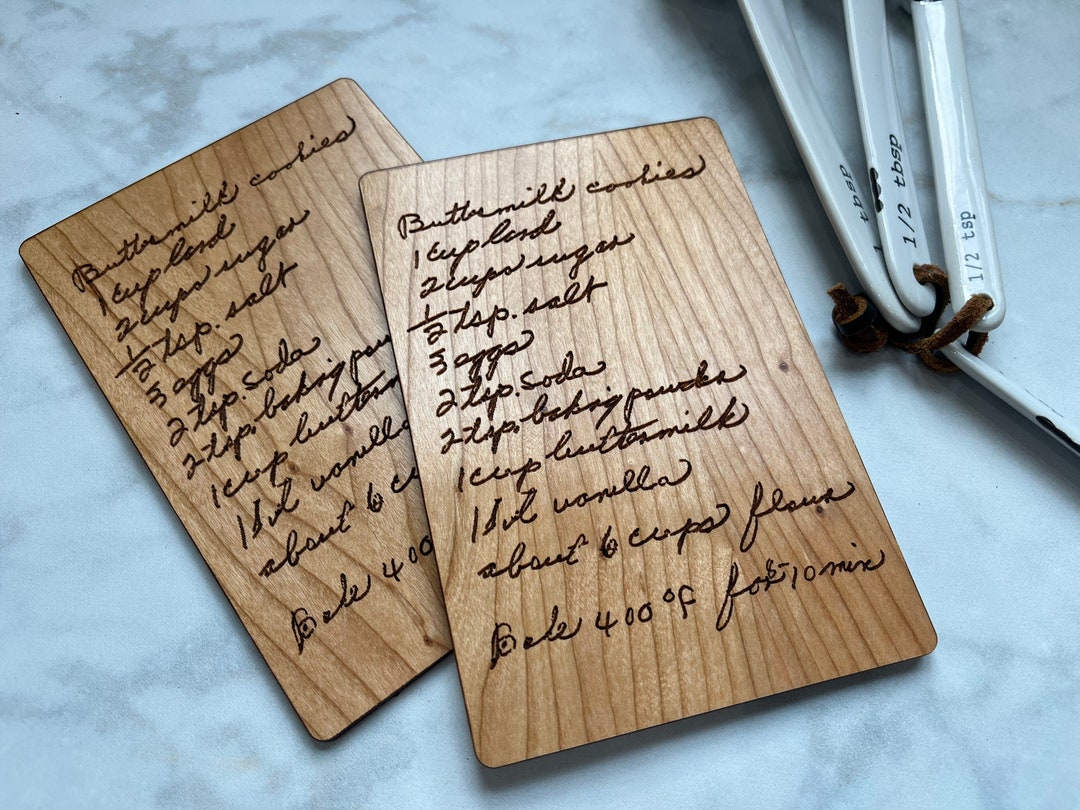 Buttermilk cookies
1 cup lard
2 cups sugar
1/2 tsp. salt
3 eggs
2 tsp. soda
2 tsp. baking pow
1 cup butterm
1 vanilla
about 6 cu
Bake 400
Buttermilk cookies
1 cup lard
2 cups sugar
1/2 tsp. salt
3 eggs
2 tsp. soda
2 tsp. baking powder
1 cup buttermilk
1 vanilla
about 6 cups flour
Bake 400°F for 10 min
1 tbsp
1/2 tbsp
1/2 tsp